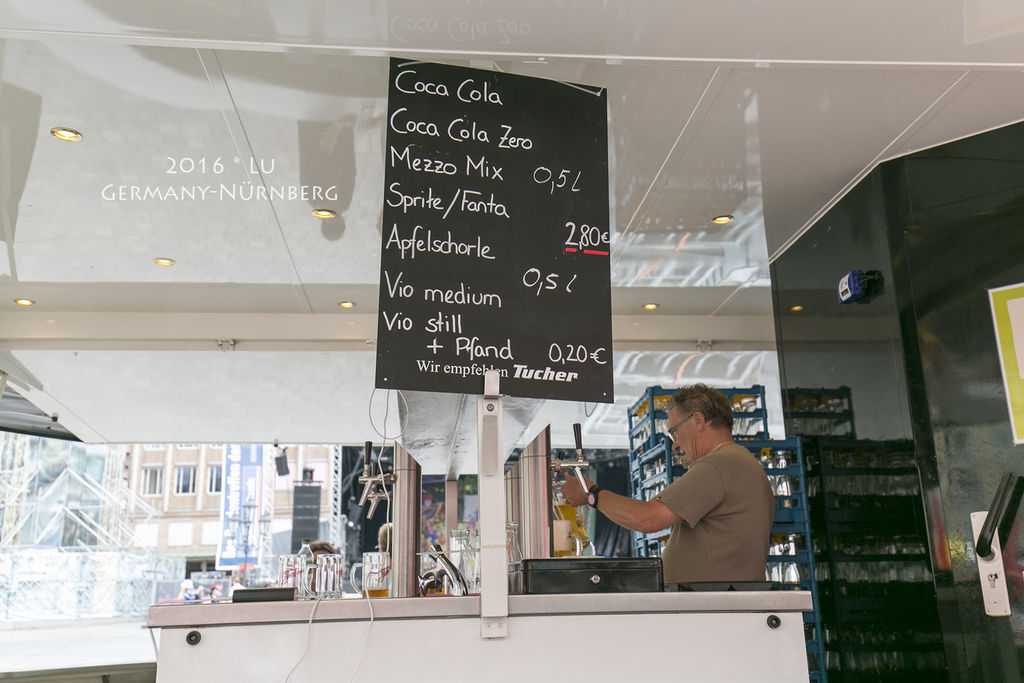 2016 * LU
GERMANY-NÜRNBERG
Coca Cola
Coca Cola Zero
Mezzo Mix 0,5L
Sprite/Fanta
2,80€
Apfelschorle
0,5L
Vio medium
Vio still
+ Pfand 0,20€
Wir empfehlen Tucher